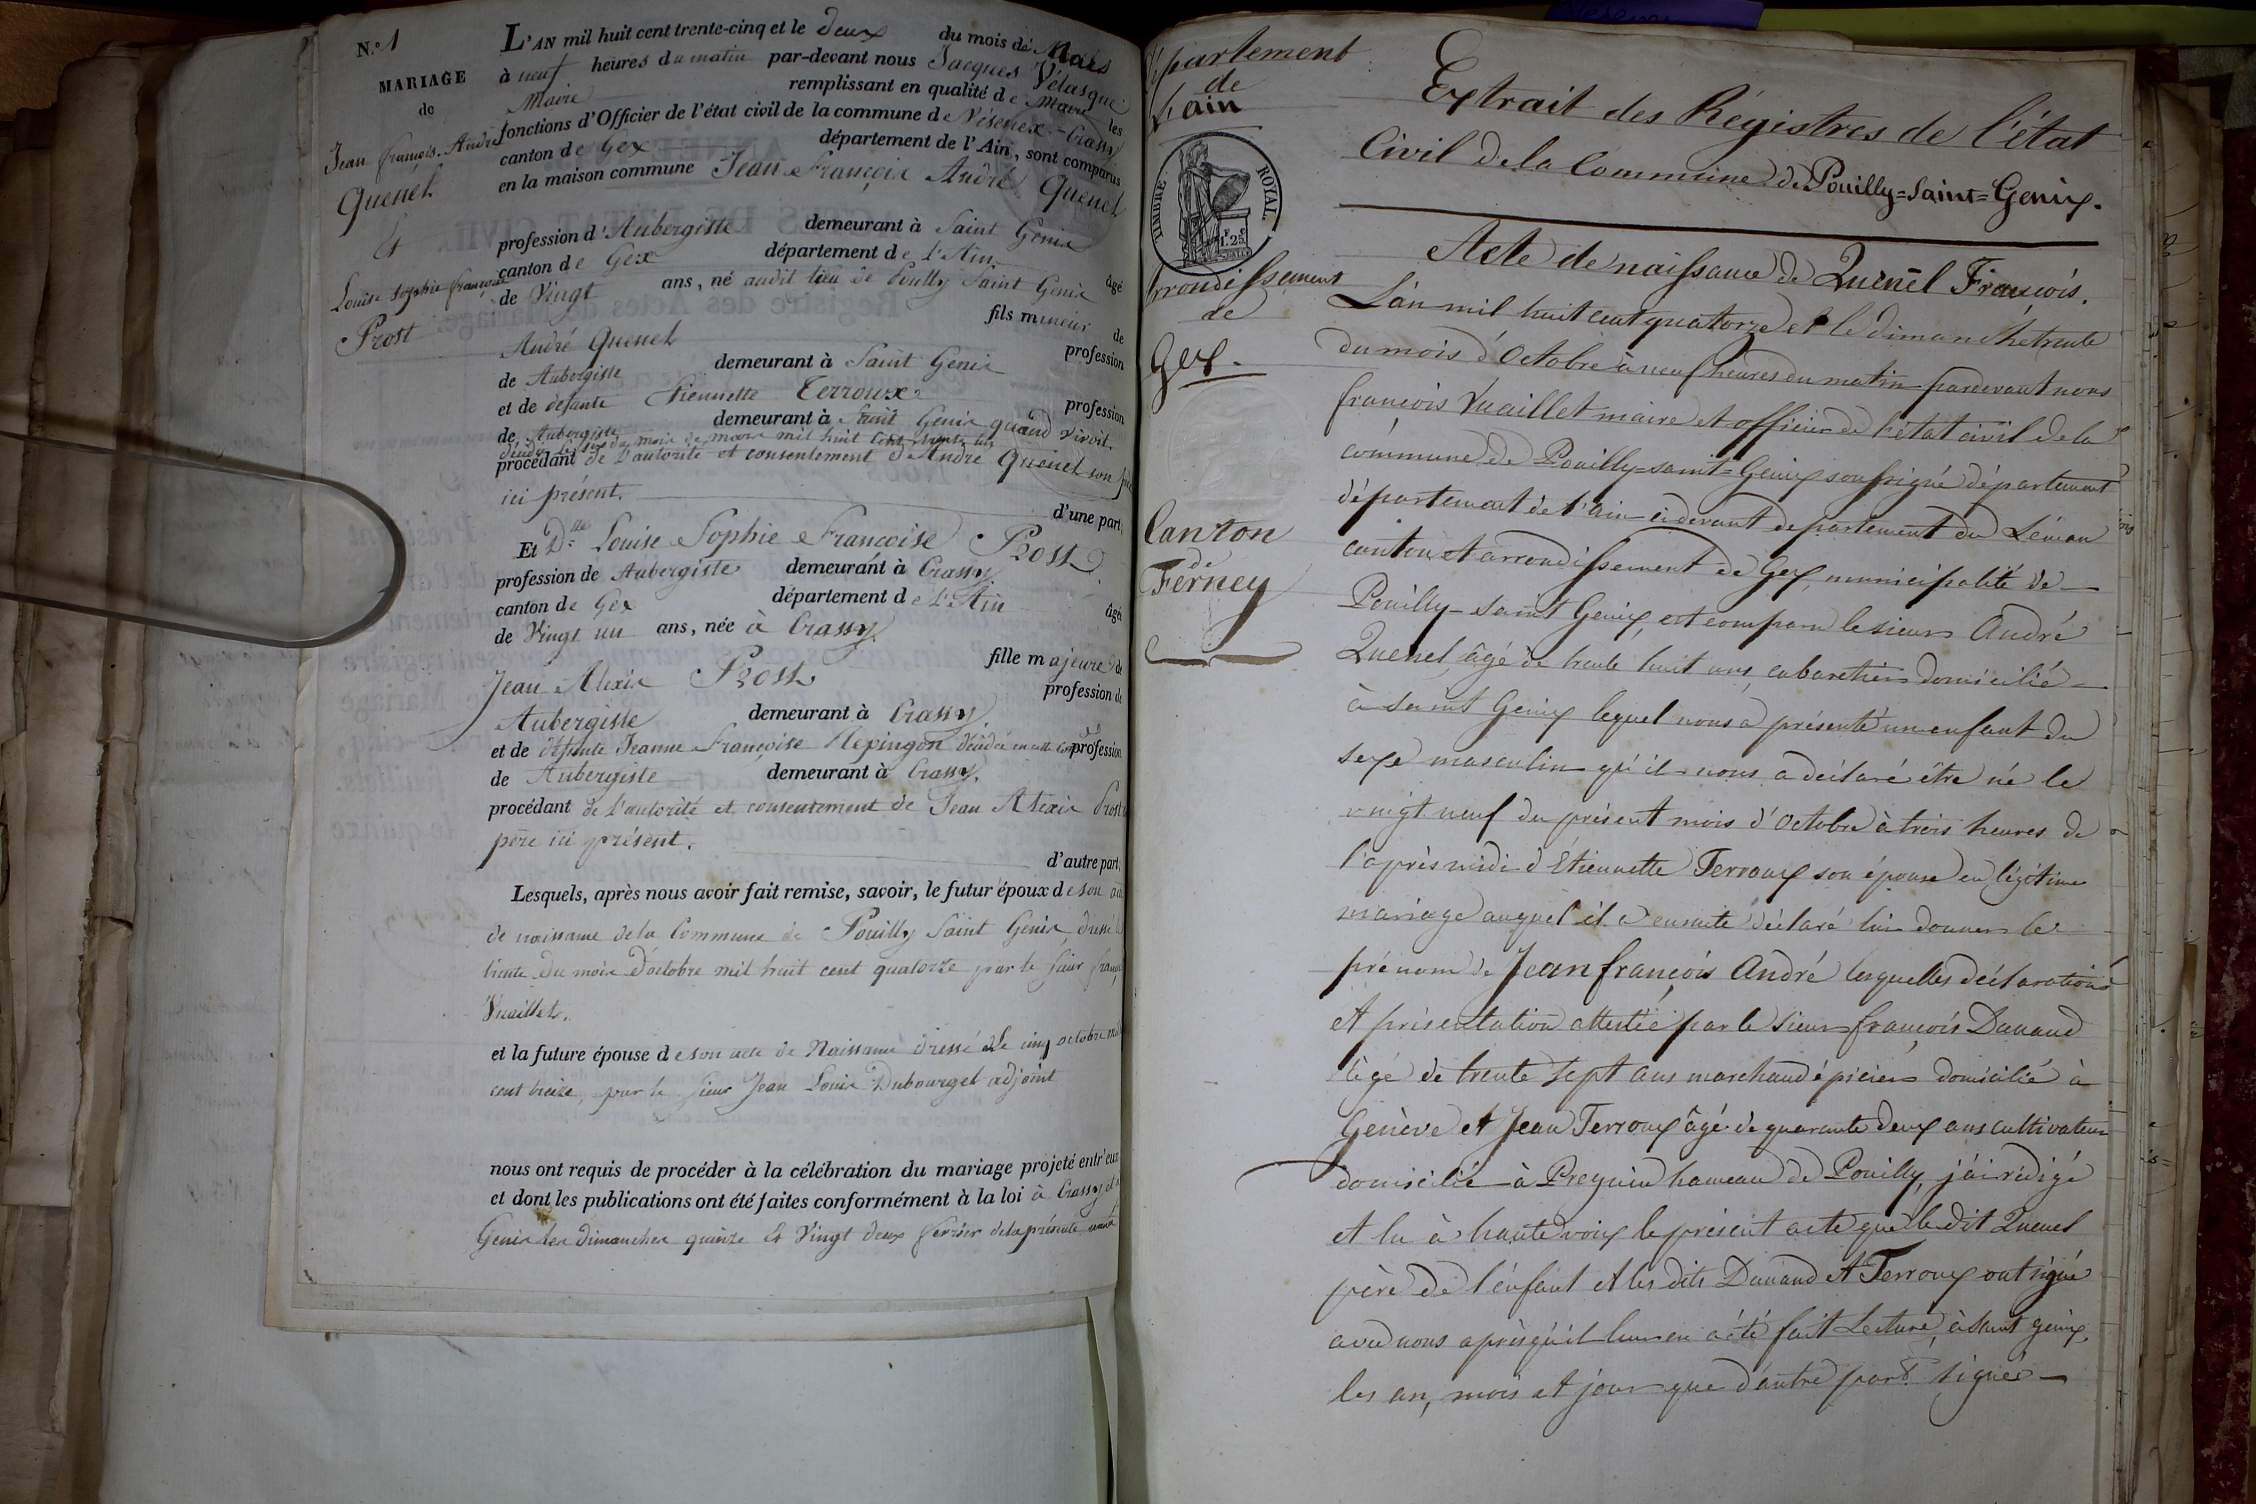 N.º 1
MARIAGE
de
Jean françois André
Quenet
&
Louise Sophie françoise
Prost
L'AN mil huit cent trente-cinq et le deux du mois de Mars
à neuf heures du matin par-devant nous Jacques Vélasque
Maire remplissant en qualité de Maire les
fonctions d'Officier de l'état civil de la commune de Vésenex-Crassy
canton de Gex département de l'Ain, sont comparus
en la maison commune Jean François André Quenet
profession d'Aubergiste demeurant à Saint Genix
canton de Gex département de L'Ain âgé
de Vingt ans, né audit lieu de Pouilly Saint Genix
fils mineur de
André Quenet profession
de Aubergiste demeurant à Saint Genix
et de défunte Etiennette Terroux profession
de Aubergiste demeurant à Saint Genix quand vivoit
du mois de mars mil huit cent trente un
procédant de l'autorité et consentement d'André Quenet son père
ici présent. d'une part,
Et Dlle Louise Sophie Françoise Prost
profession de Aubergiste demeurant à Crassy
canton de Gex département de L'Ain âgé
de Vingt un ans, née à Crassy
fille majeure de
Jean Alexis Prost profession de
Aubergiste demeurant à Crassy.
et de défunte Jeanne Françoise Repingon décédée en cette profession
de Aubergiste demeurant à Crassy.
procédant de l'autorité et consentement de Jean Alexis Prost
père ici présent. d'autre part;
Lesquels, après nous avoir fait remise, savoir, le futur époux de son
de naissance de la Commune de Pouilly Saint Genix, dressé
trente du mois d'octobre mil huit cent quatorze par le sieur
Vuaillet.
et la future épouse de son acte de Naissance dressé le cinq octobre
cent treize, par le sieur Jean Louis Dubourget adjoint
nous ont requis de procéder à la célébration du mariage projeté entr'eux
et dont les publications ont été faites conformément à la loi à Crassy et
Genix les dimanches quinze & Vingt deux février de la présente année
Département
de
L'ain
TIMBRE ROYAL
1.25
Arrondissement
de
Gex.
Canton
de
Ferney
Extrait des Régistres de l'état
Civil de la Commune de Pouilly=Saint=Genix.
Acte de naissance de Quenêl François.
L'an mil huit cent quatorze et le dimanche trente
du mois d'Octobre à neuf heures du matin pardevant nous
françois Vuaillet maire et officier de l'état civil de la
commune de Pouilly=saint=Genix soussigné département
département de l'ain ci devant departement du Léman
canton et arrondissement de Gex, municipalité de
Pouilly-saint Genix, est comparu le sieur André
Quenet, âgé de trente huit ans, cabaretier domicilié
à saint Genix lequel nous a présenté un enfant du
sexe masculin qu'il nous a déclaré être né le
vingt neuf du présent mois d'Octobre à trois heures de
l'après midi d'Etiennette Terroux son épouse en légitime
mariage auquel il a ensuite déclaré lui donner le
prénom de Jean françois André lesquelles déclarations
et présentation attestée par le sieur françois Danand
âgé de trente sept ans marchand épicier domicilié à
Genève et Jean Terroux âgé de quarante deux ans cultivateur
domicilié à Pregnin hameau de Pouilly, j'ai rédigé
et lu à haute voix le présent acte que le dit Quenet
père de l'enfant et les dits Danand et Terroux ont signé
avec nous après qu'il leur en a été fait Lecture, à saint genix,
les an, mois et jour que d'autre part. signés